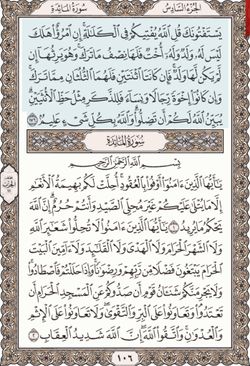 الجزء السادس
سورة المائدة
يستفتونك قل الله يفتيكم في الكلالة إن امرؤا هلك
ليس له ولد وله أخت فلها نصف ما ترك وهو يرثها إن
لم يكن لها ولد فإن كانتا اثنتين فلهما الثلثان مما ترك
وإن كانوا إخوة رجالا ونساء فللذكر مثل حظ الأنثيين
يبين الله لكم أن تضلوا والله بكل شيء عليم ١٧٦
سورة المائدة
بسم الله الرحمن الرحيم
يأيها الذين ءامنوا أوفوا بالعقود أحلت لكم بهيمة الأنعم
إلا ما يتلى عليكم غير محلي الصيد وأنتم حرم إن الله
يحكم ما يريد ١ يأيها الذين ءامنوا لا تحلوا شعئر الله
ولا الشهر الحرام ولا الهدي ولا القلئد ولا ءامين البيت
الحرام يبتغون فضلا من ربهم ورضونا وإذا حللتم فاصطادوا
ولا يجرمنكم شنئان قوم أن صدوكم عن المسجد الحرام أن
تعتدوا وتعاونوا على البر والتقوى ولا تعاونوا على الإثم
والعدون واتقوا الله إن الله شديد العقاب ٢
١٠٦